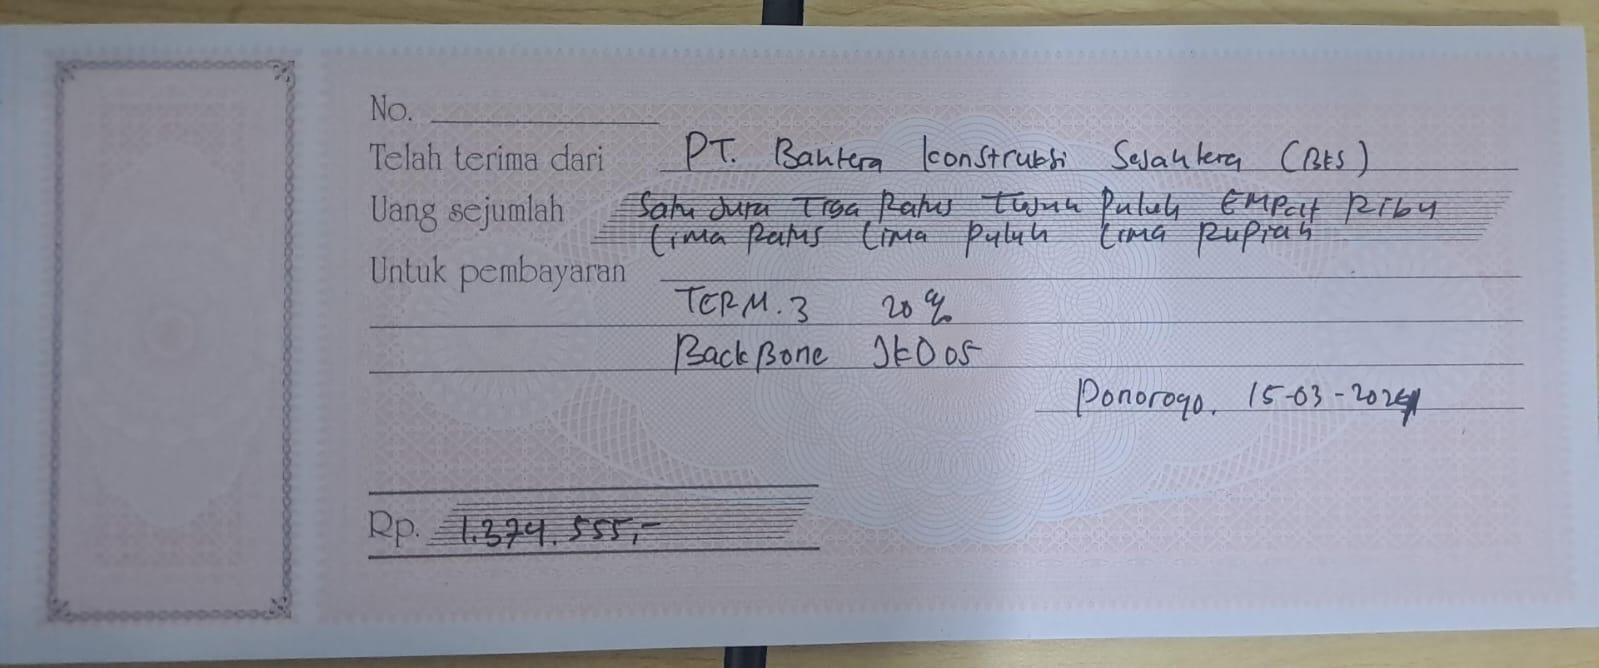 No.
Telah terima dari PT. Bahtera Konstruksi Sejahtera (BKS)
Uang sejumlah Satu Juta Tiga Ratus Tujuh Puluh Empat Ribu
Lima Ratus Lima Puluh Lima Rupiah
Untuk pembayaran
TERM. 3 20%
BackBone JKD05
Ponorogo, 15-03-2024
Rp. 1.374.555,-